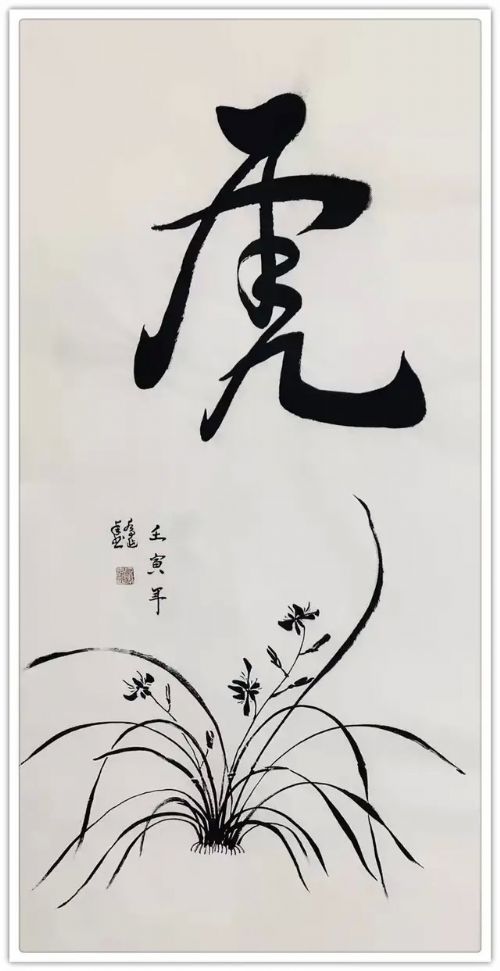 虎
壬寅年